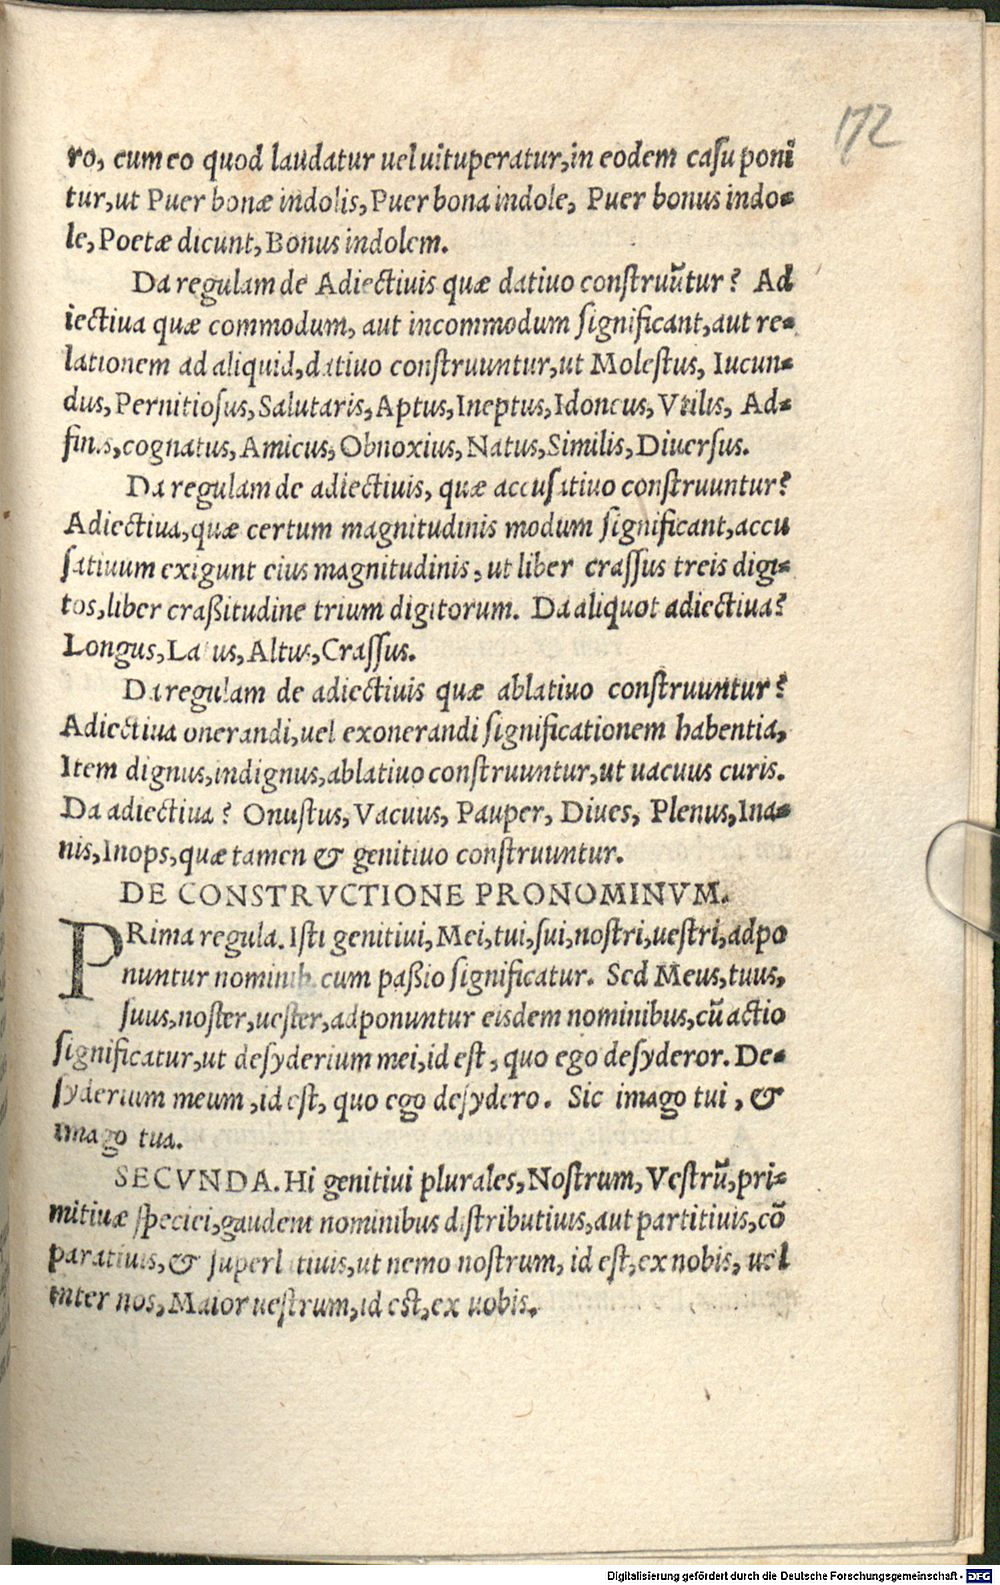 172
ro, cum eo quod laudatur uel uituperatur, in eodem casu poni
tur, ut Puer bonæ indolis, Puer bona indole, Puer bonus indo-
le, Poetæ dicunt, Bonus indolem.
Da regulam de Adiectiuis quæ datiuo construũtur? Ad
iectiua quæ commodum, aut incommodum significant, aut re-
lationem ad aliquid, datiuo construuntur, ut Molestus, Iucun-
dus, Pernitiosus, Salutaris, Aptus, Ineptus, Idoneus, Vtilis, Ad-
finis, cognatus, Amicus, Obnoxius, Natus, Similis, Diuersus.
Da regulam de adiectiuis, quæ accusatiuo construuntur?
Adiectiua, quæ certum magnitudinis modum significant, accu
satiuum exigunt eius magnitudinis, ut liber crassus treis digi-
tos, liber craßitudine trium digitorum. Da aliquot adiectiua?
Longus, Latus, Altus, Crassus.
Da regulam de adiectiuis quæ ablatiuo construuntur?
Adiectiua onerandi, uel exonerandi significationem habentia,
Item dignus, indignus, ablatiuo construuntur, ut uacuus curis.
Da adiectiua? Onustus, Vacuus, Pauper, Diues, Plenus, Ina-
nis, Inops, quæ tamen & genitiuo construuntur.
DE CONSTRVCTIONE PRONOMINVM.
PRima regula. Isti genitiui, Mei, tui, sui, nostri, uestri, adpo
nuntur nominib. cum paßio significatur. Sed Meus, tuus,
suus, noster, uester, adponuntur eisdem nominibus, cũ actio
significatur, ut desyderium mei, id est, quo ego desyderor. De-
syderium meum, id est, quo ego desydero. Sic imago tui, &
imago tua.
SECVNDA. Hi genitiui plurales, Nostrum, Vestrũ, pri-
mitiuæ speciei, gaudent nominibus distributiuis, aut partitiuis, cõ
paratiuis, & superlatiuis, ut nemo nostrum, id est, ex nobis, uel
inter nos, Maior uestrum, id est, ex uobis.
Digitalisierung gefördert durch die Deutsche Forschungsgemeinschaft - DFG